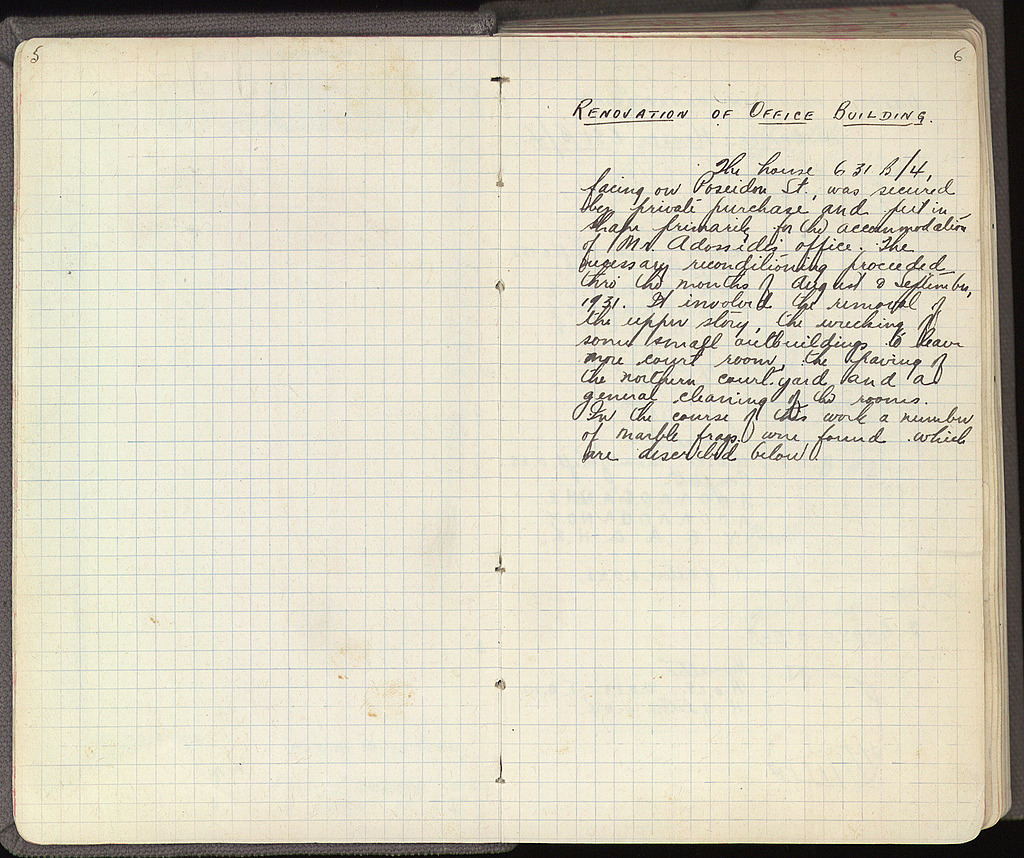 5
6
RENOVATION OF OFFICE BUILDING.
The house 631 B/4,
facing on Poseidon St., was secured
by private purchase and put in
shape primarily for the accommodation
of Mr. Adossidis office. The
necessary reconditioning proceeded
thro the months of August & September,
1931. It involved the removal of
the upper story, the wrecking of
some small outbuildings to leave
more court room, the paving of
the northern court yard and a
general cleaning of the rooms.
In the course of this work a number
of marble frags. were found which
are described below.